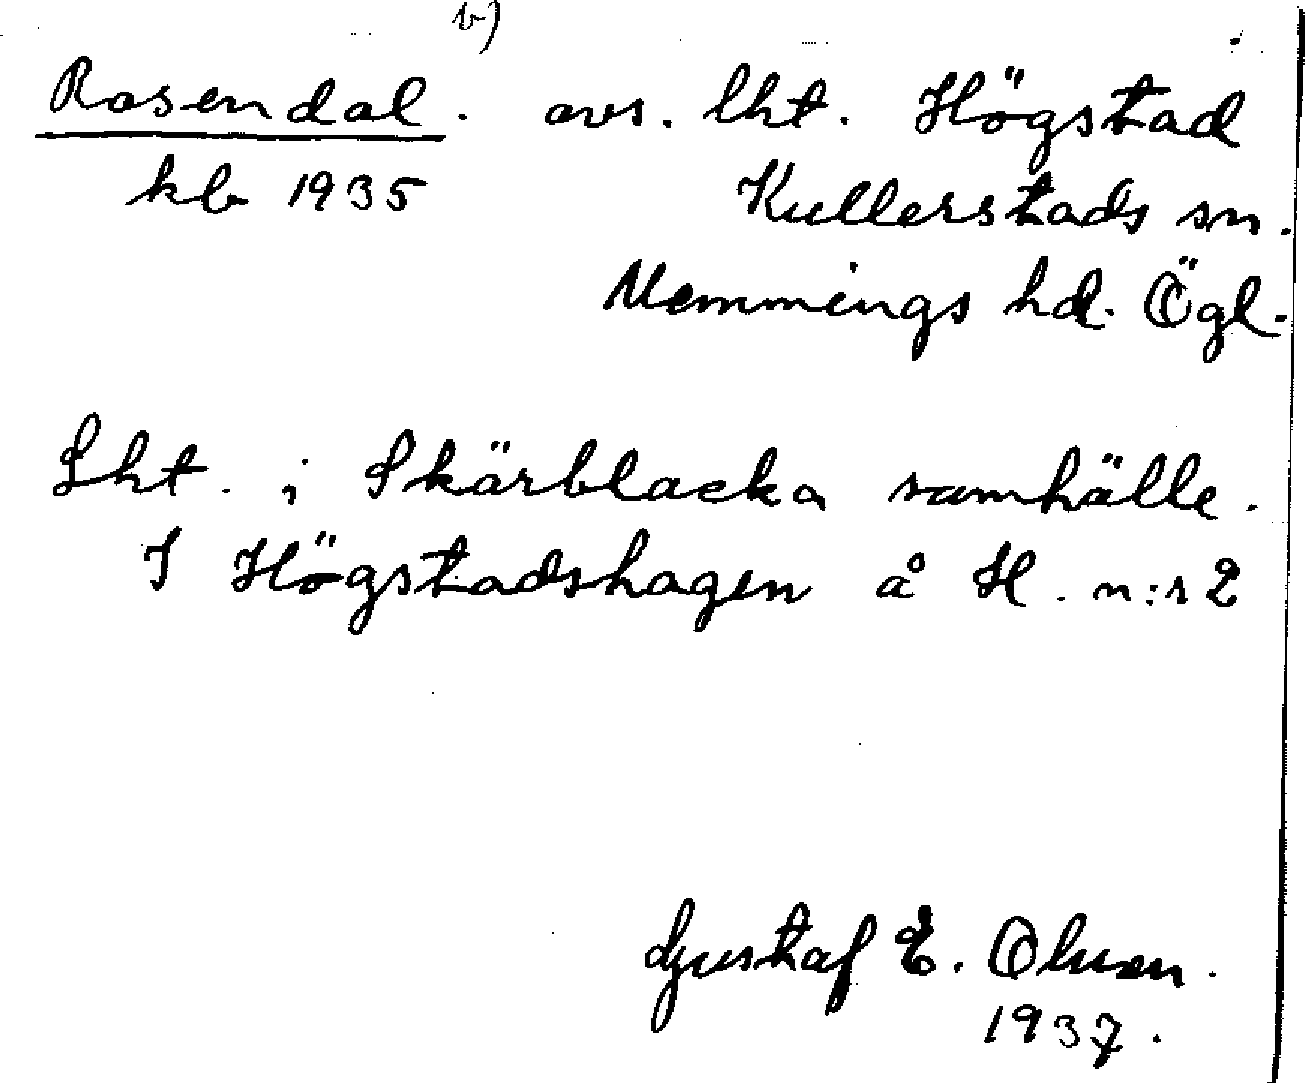 b)
Rosendal. avs. lht. Högstad
kb 1935 Kullerstads sn.
Memmings hd. Ögl.
Lht. i Skärblacka samhälle.
I Högstadshagen å H. n:r 2
Gustaf E. Olsson.
1937.